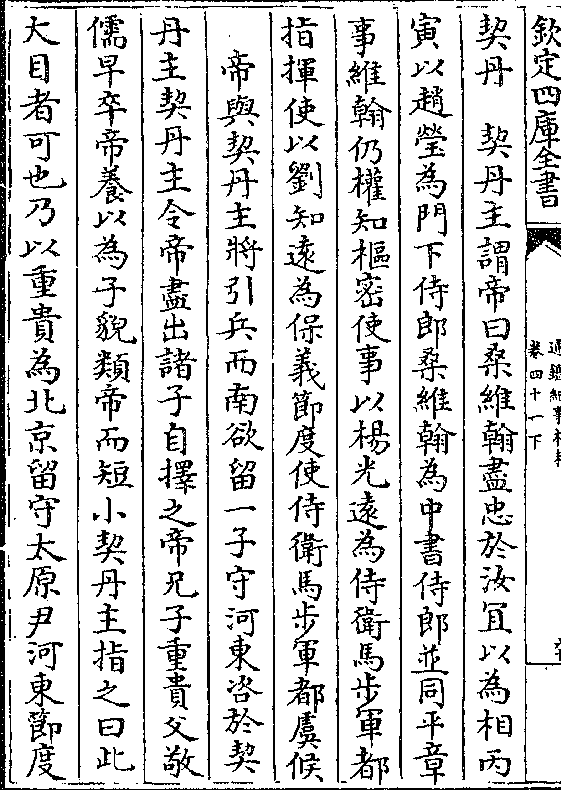 欽定四庫全書
通鑑紀事本末
卷四十一下
契丹　契丹主謂帝曰桑維翰盡忠於汝宜以為相丙
寅以趙瑩為門下侍郎桑維翰為中書侍郎並同平章
事維翰仍權知樞密使事以楊光遠為侍衛馬步軍都
指揮使以劉知遠為保義節度使侍衛馬步軍都虞候
　帝與契丹主將引兵而南欲留一子守河東咨於契
丹主契丹主令帝盡出諸子自擇之帝兄子重貴父敬
儒早卒帝養以為子貌類帝而短小契丹主指之曰此
大目者可也乃以重貴為北京留守太原尹河東節度